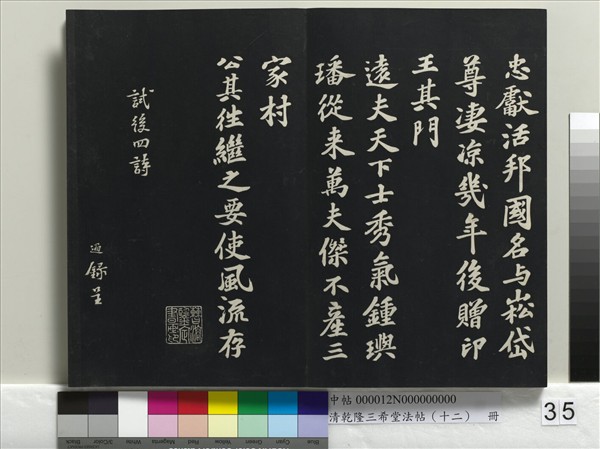 忠獻活邦國名与崧岱
尊凄凉幾年後贈印
王其門
遠夫天下士秀氣鍾璵
璠從来萬夫傑不產三
家村
公其往繼之要使風流存
試後四詩
錄呈
中帖 000012N000000000
清乾隆三希堂法帖（十二） 冊
35
Black
3/Color
White
Magenta
Red
Yellow
Green
Cyan
Blue